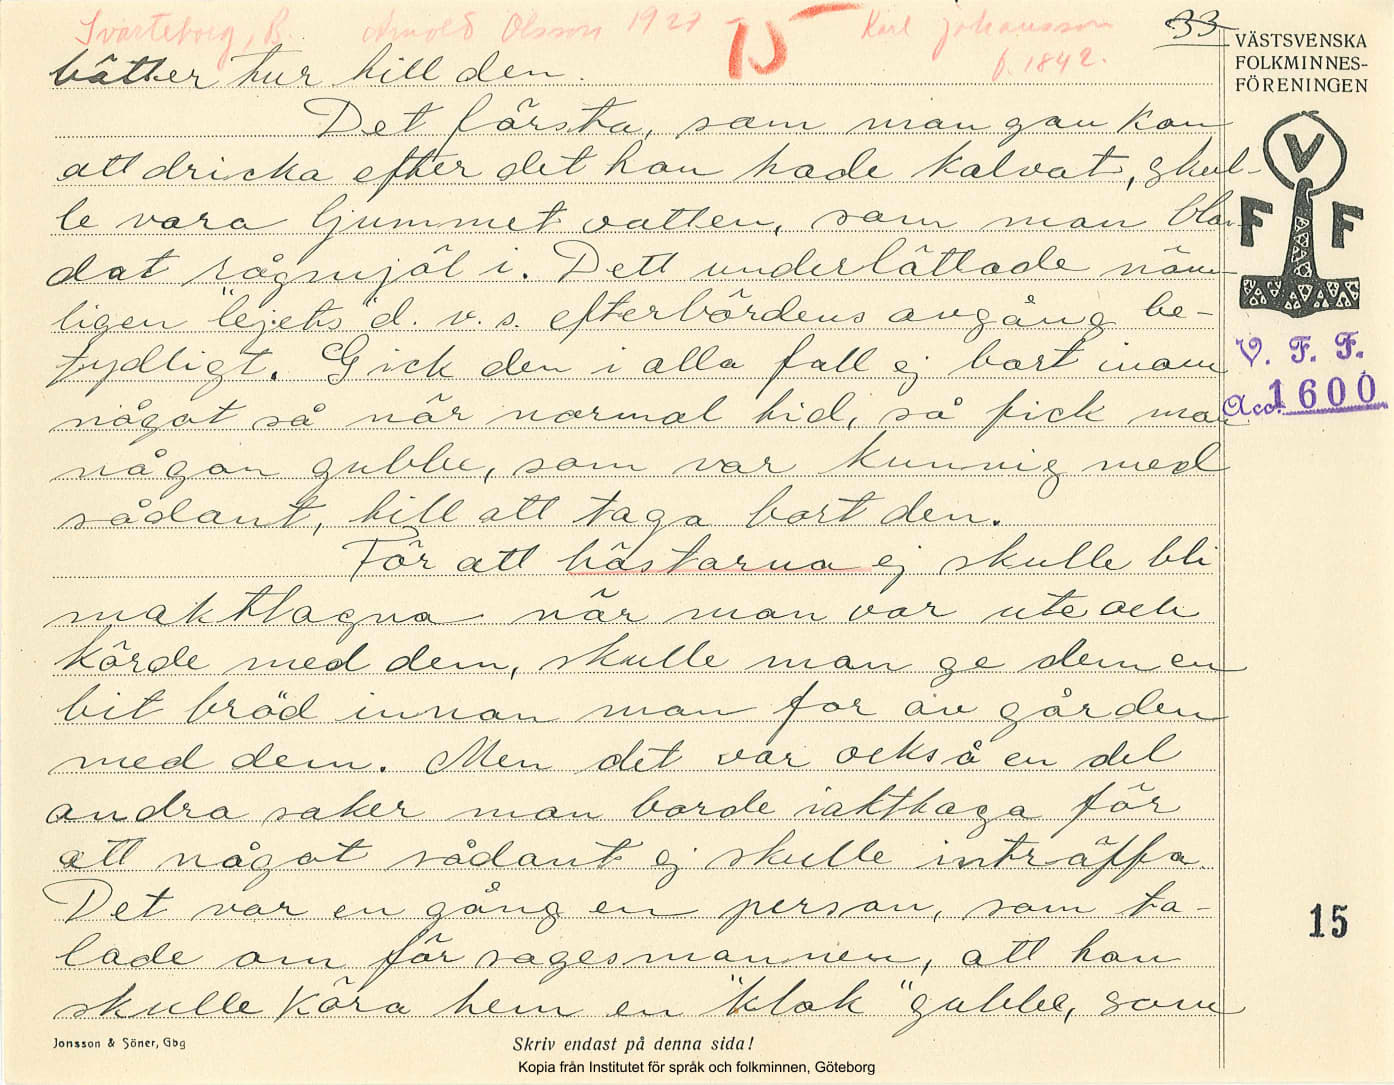 Svarteborg, B. Arnold Olsson 1927 15 Karl Johansson
f. 1842.
33
VÄSTSVENSKA
FOLKMINNES-
FÖRENINGEN
V
F F
V. F. F.
Acc. 1600
bätter hur till den.
Det första, som man gav kon
att dricka efter det hon hade kalvat, skul-
le vara ljummet vatten, som man blan-
dat rågmjöl i. Dett underlättade näm-
ligen "lejets" d. v. s. efterbördens avgång be-
tydligt. Gick den i alla fall ej bort inom
något så när normal tid, så fick man
någon gubbe, som var kunnig med
sådant, till att taga bort den.
För att hästarna ej skulle bli
makttagna när man var ute och
körde med dem, skulle man ge dem en
bit bröd innan man for av gården
med dem. Men det var också en del
andra saker man borde iakttaga för
att något sådant ej skulle inträffa.
Det var en gång en person, som ta-
lade om för sagesmannen, att han
skulle köra hem en "klok" gubbe, som
15
Jonsson & Söner, Gbg
Skriv endast på denna sida!
Kopia från Institutet för språk och folkminnen, Göteborg